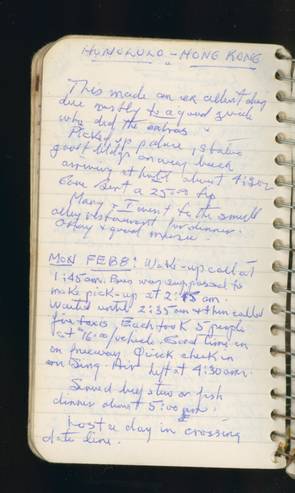 HONOLULO - HONG KONG
This made an excellent day
due mostly to a good guide
who did the extras.
Picked up palace, statue
govt bldgs on way back
arriving at hotel about 4:30
Gave Bert a 25.00 tip
Mary & I went to the small
alley restaurant for dinner.
Okay & good music.
MON FEB 8: Wake-up call at
1:45 am. Bus was supposed to
make pick-up at 2:15 am.
Waited until 2:35 am & then called
five taxis. Each took 5 people
at $16.00/vehicle. Good time in
on freeway. Quick check in
on Sing. Air left at 4:30 am.
Served beef stew or fish
dinner about 5:00 pm.
Lost a day in crossing
date line.